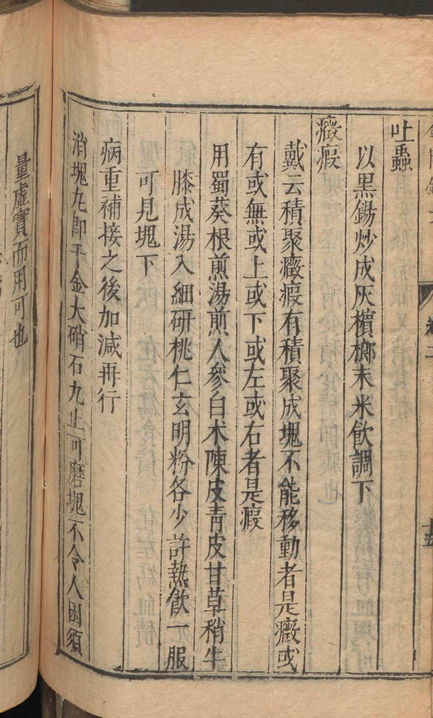 吐蟲
以黑錫炒成灰檳榔末米飲調下
癥瘕
戴云積聚癥瘕有積聚成塊不能移動者是癥或
有或無或上或下或左或右者是瘕
用蜀葵根煎湯煎人參白朮陳皮青皮甘草稍牛
膝成湯入細研桃仁玄明粉各少許熱飲一服
可見塊下
病重補接之後加減再行
消塊丸即千金大硝石丸止可磨塊不令人困須
量虛實而用可也